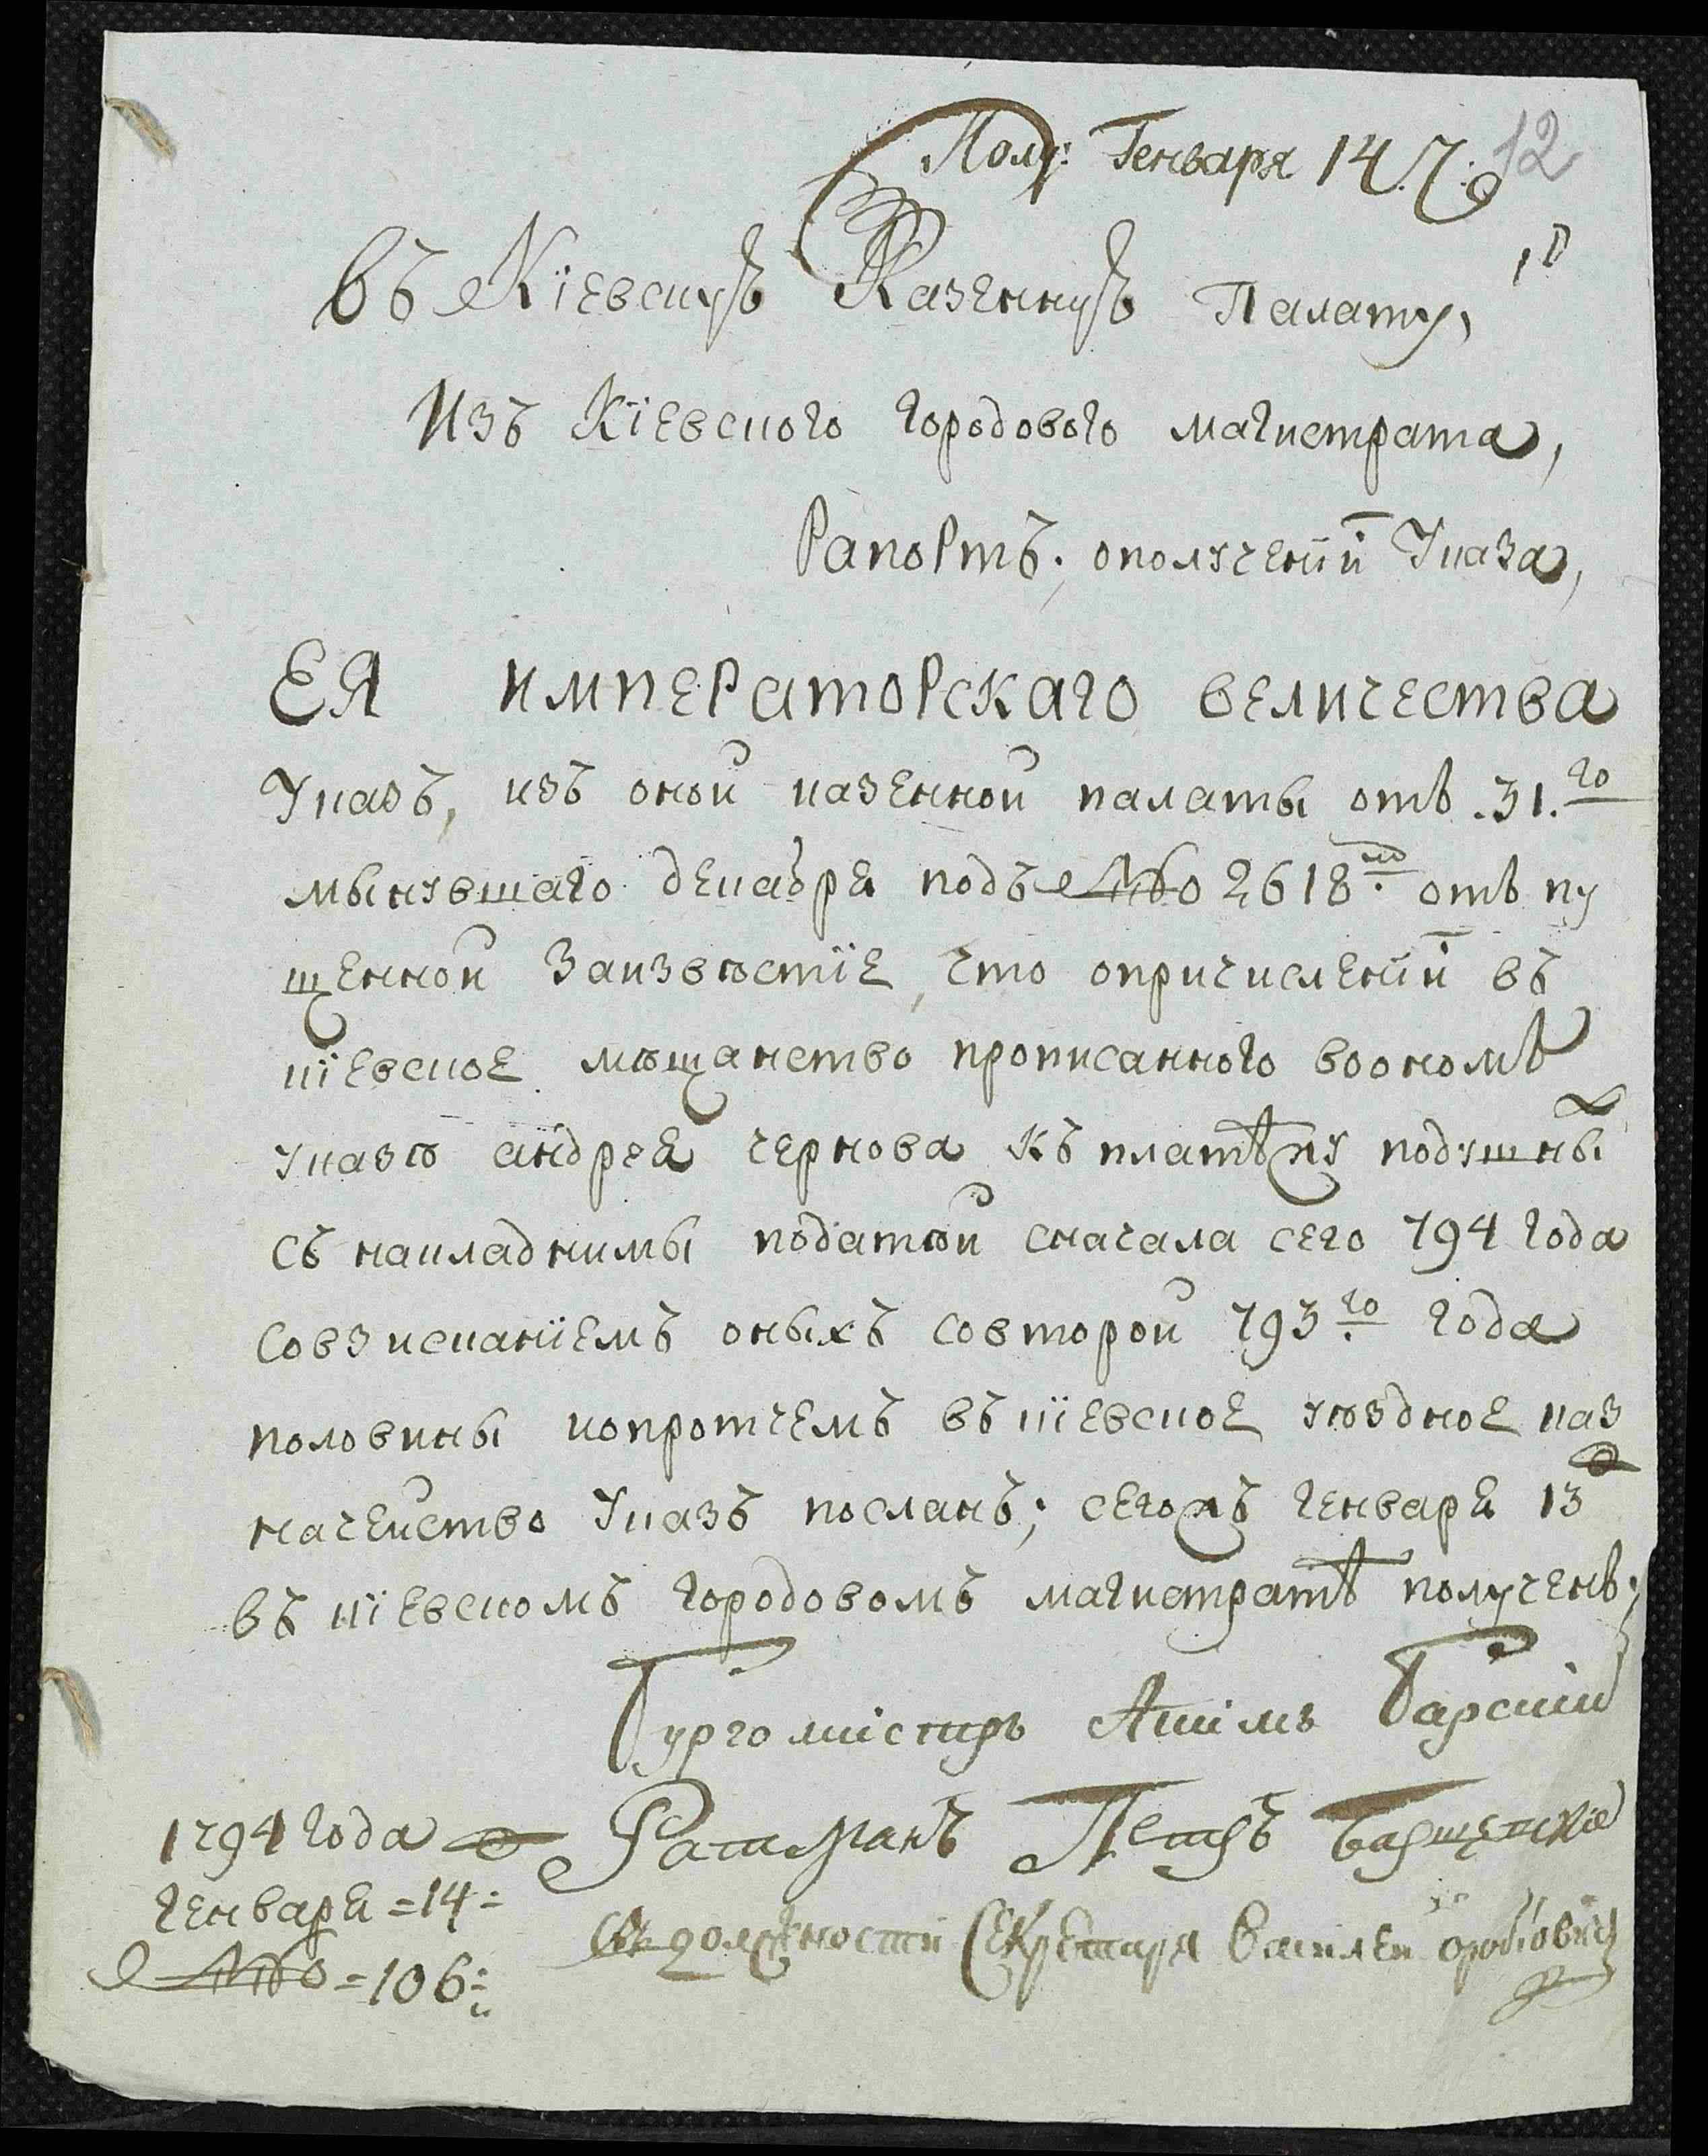 Полу: Генваря 14. 7
12
Въ Кїевскую Казенную Палату,
Изъ Кїевского городового магистрата,
Рапортъ; ополученїи Указа,
ЕЯ ИМПЕРАТОРСКАГО ВЕЛИЧЕСТВА
Указъ, изъ оной казенной палаты отъ .31.го
мынувшаго декабря подъ №о 2618м отъ пу
щенной Заизвѣстїе, что опричисленїи въ
кїевское мѣщанство прописанного воономъ
указѣ андрея чернова къ платежу подушны
съ накладнимы податѣй сначала сего 794 года
совзисканїемъ оныхъ совторой 793го года
половины копротчемъ въ кїевское уѣздное каз
начейство Указъ посланъ; сегожъ генваря 13
въ кїевскомъ городовомъ магистратѣ полученъ;
Бургомистръ Акимъ Барскїй
1794 года Ратманъ Петръ
генваря =14=
въ должности Секретаря Василей
№о =106=